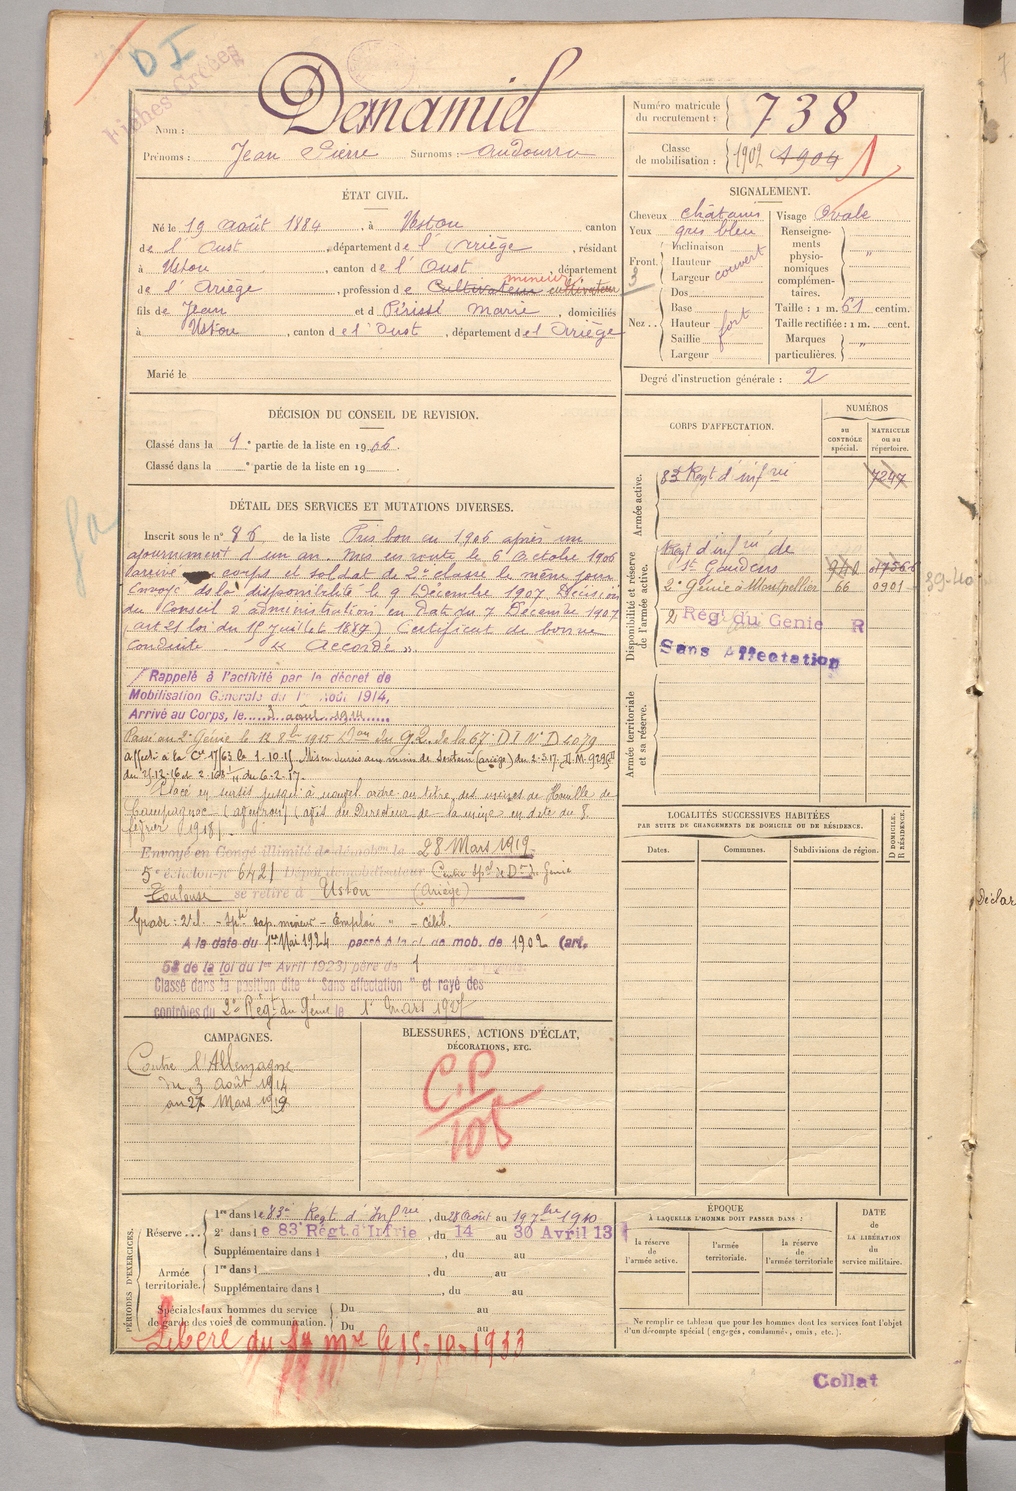 DI
Fiches Créées
Nom : Denamiel
Prénoms : Jean Pierre Surnoms : Audourra
Numéro matricule du recrutement : 738
Classe de mobilisation : 1902 1904 1
ÉTAT CIVIL.
Né le 19 août 1884, à Ustou canton
de l'Oust, département de l'Ariège, résidant
à Ustou, canton de l'Oust département
de l'Ariège, profession de Cultivateur cultivateur mineur
fils de Jean et d Périssé Marie, domiciliés
à Ustou, canton de l'Oust, département de l'Ariège
Marié le
SIGNALEMENT.
Cheveux châtains
Yeux gris bleu
Front.
Inclinaison
Hauteur
Largeur couvert
3
Nez..
Dos
Base
Hauteur fort
Saillie
Largeur
Visage Ovale
Renseignements physionomiques complémentaires. "
Taille : 1 m. 61 centim.
Taille rectifiée : 1 m. cent.
Marques particulières. "
Degré d'instruction générale : 2
DÉCISION DU CONSEIL DE REVISION.
Classé dans la 1e partie de la liste en 1906.
Classé dans la e partie de la liste en 19
CORPS D'AFFECTATION.
NUMÉROS
au CONTRÔLE spécial.
MATRICULE ou au répertoire.
Armée active.
83e Regt d'infrie 7247
Disponibilité et réserve de l'armée active.
Regt d'infrie de
St Gaudens
2e Génie à Montpellier 66 0901
39-40
2 Régt du Génie R
Sans Affectation
Armée territoriale et sa réserve.
DÉTAIL DES SERVICES ET MUTATIONS DIVERSES.
Inscrit sous le n° 86 de la liste Pris bon en 1906 après un
ajournement d'un an. Mis en route le 6 octobre 1906
Arrivé au corps et soldat de 2e classe le même jour
Envoyé dans la disponibilité le 9 Décembre 1907 Décision
du Conseil d'administration en date du 7 Décembre 1907
(art 21 loi du 15 juillet 1889) Certificat de bonne
conduite « Accordé ».
Rappelé à l'activité par le décret de
Mobilisation Générale du 1er Août 1914,
Arrivé au Corps, le 3 août 1914
Passé au 2e Génie le
affecté à la Cie 17/63 le 1-10-15 Mis en sursis aux mines de Sentein (ariège) du 2-3-17.
du 25-12-16 et du 6-2-17.
Placé en sursis jusqu'à nouvel ordre au titre des mines de Houille de
Campagnac (aveyron) (avis du Directeur de la mine en date du 8
février 1918).
Envoyé en Congé illimité de démobon le 28 Mars 1919
5e échelon n° 6421 Dépôt démobilisateur Centre Spal de Don du Génie
Toulouse se retire à Ustou (Ariège)
Grade : 2e cl. - Spté sap. mineur - Emploi " - célib.
A la date du 1er Mai 1924 passé à la cl. de mob. de 1902 (art.
58 de la loi du 1er Avril 1923) père de 1
Classé dans la position dite "Sans affectation" et rayé des
contrôles du 2e Régt du Génie le 1er mars 1927
LOCALITÉS SUCCESSIVES HABITÉES
PAR SUITE DE CHANGEMENTS DE DOMICILE OU DE RÉSIDENCE.
Dates.
Communes.
Subdivisions de région.
D DOMICILE.
R RÉSIDENCE.
CAMPAGNES.
Contre l'Allemagne
du 3 août 1914
au 27 Mars 1919
BLESSURES, ACTIONS D'ÉCLAT,
DÉCORATIONS, ETC.
C.P
105
PÉRIODES D'EXERCICES.
Réserve...
1re dans le 83e Regt d'Infrie, du 28 Août au 19 7bre 1910
2e dans le 83e Régt d'Infrie, du 14 au 30 Avril 13
Supplémentaire dans l , du au
Armée territoriale.
1re dans l , du au
Supplémentaire dans l , du au
Spéciales aux hommes du service de garde des voies de communication.
Du au
Du au
Libéré du Sce Mre le 15-10-1933
ÉPOQUE
À LAQUELLE L'HOMME DOIT PASSER DANS :
la réserve de l'armée active.
l'armée territoriale.
la réserve de l'armée territoriale
DATE de LA LIBÉRATION du service militaire.
Ne remplir ce tableau que pour les hommes dont les services font l'objet
d'un décompte spécial (engagés, condamnés, omis, etc.).
Collat